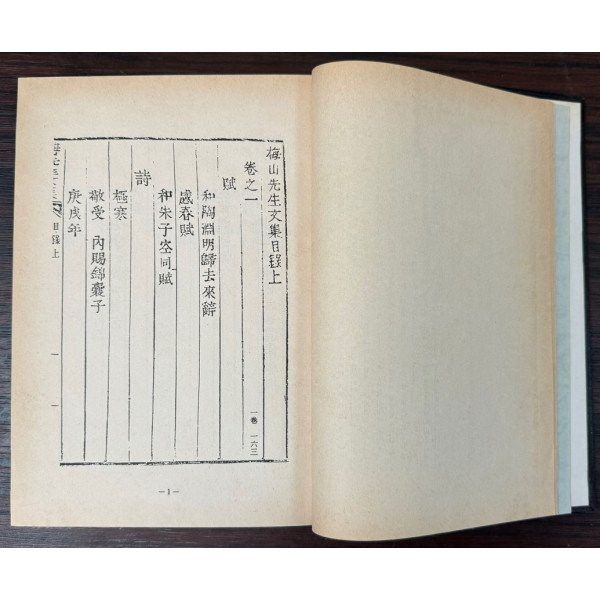 梅山先生文集目錄上
卷之一
一卷 一六三
賦
和陶淵明歸去來辭
感春賦
和朱子空同賦
詩
極寒
敬受 內賜錦囊子
庚戌年
目錄上
一
一
—1—